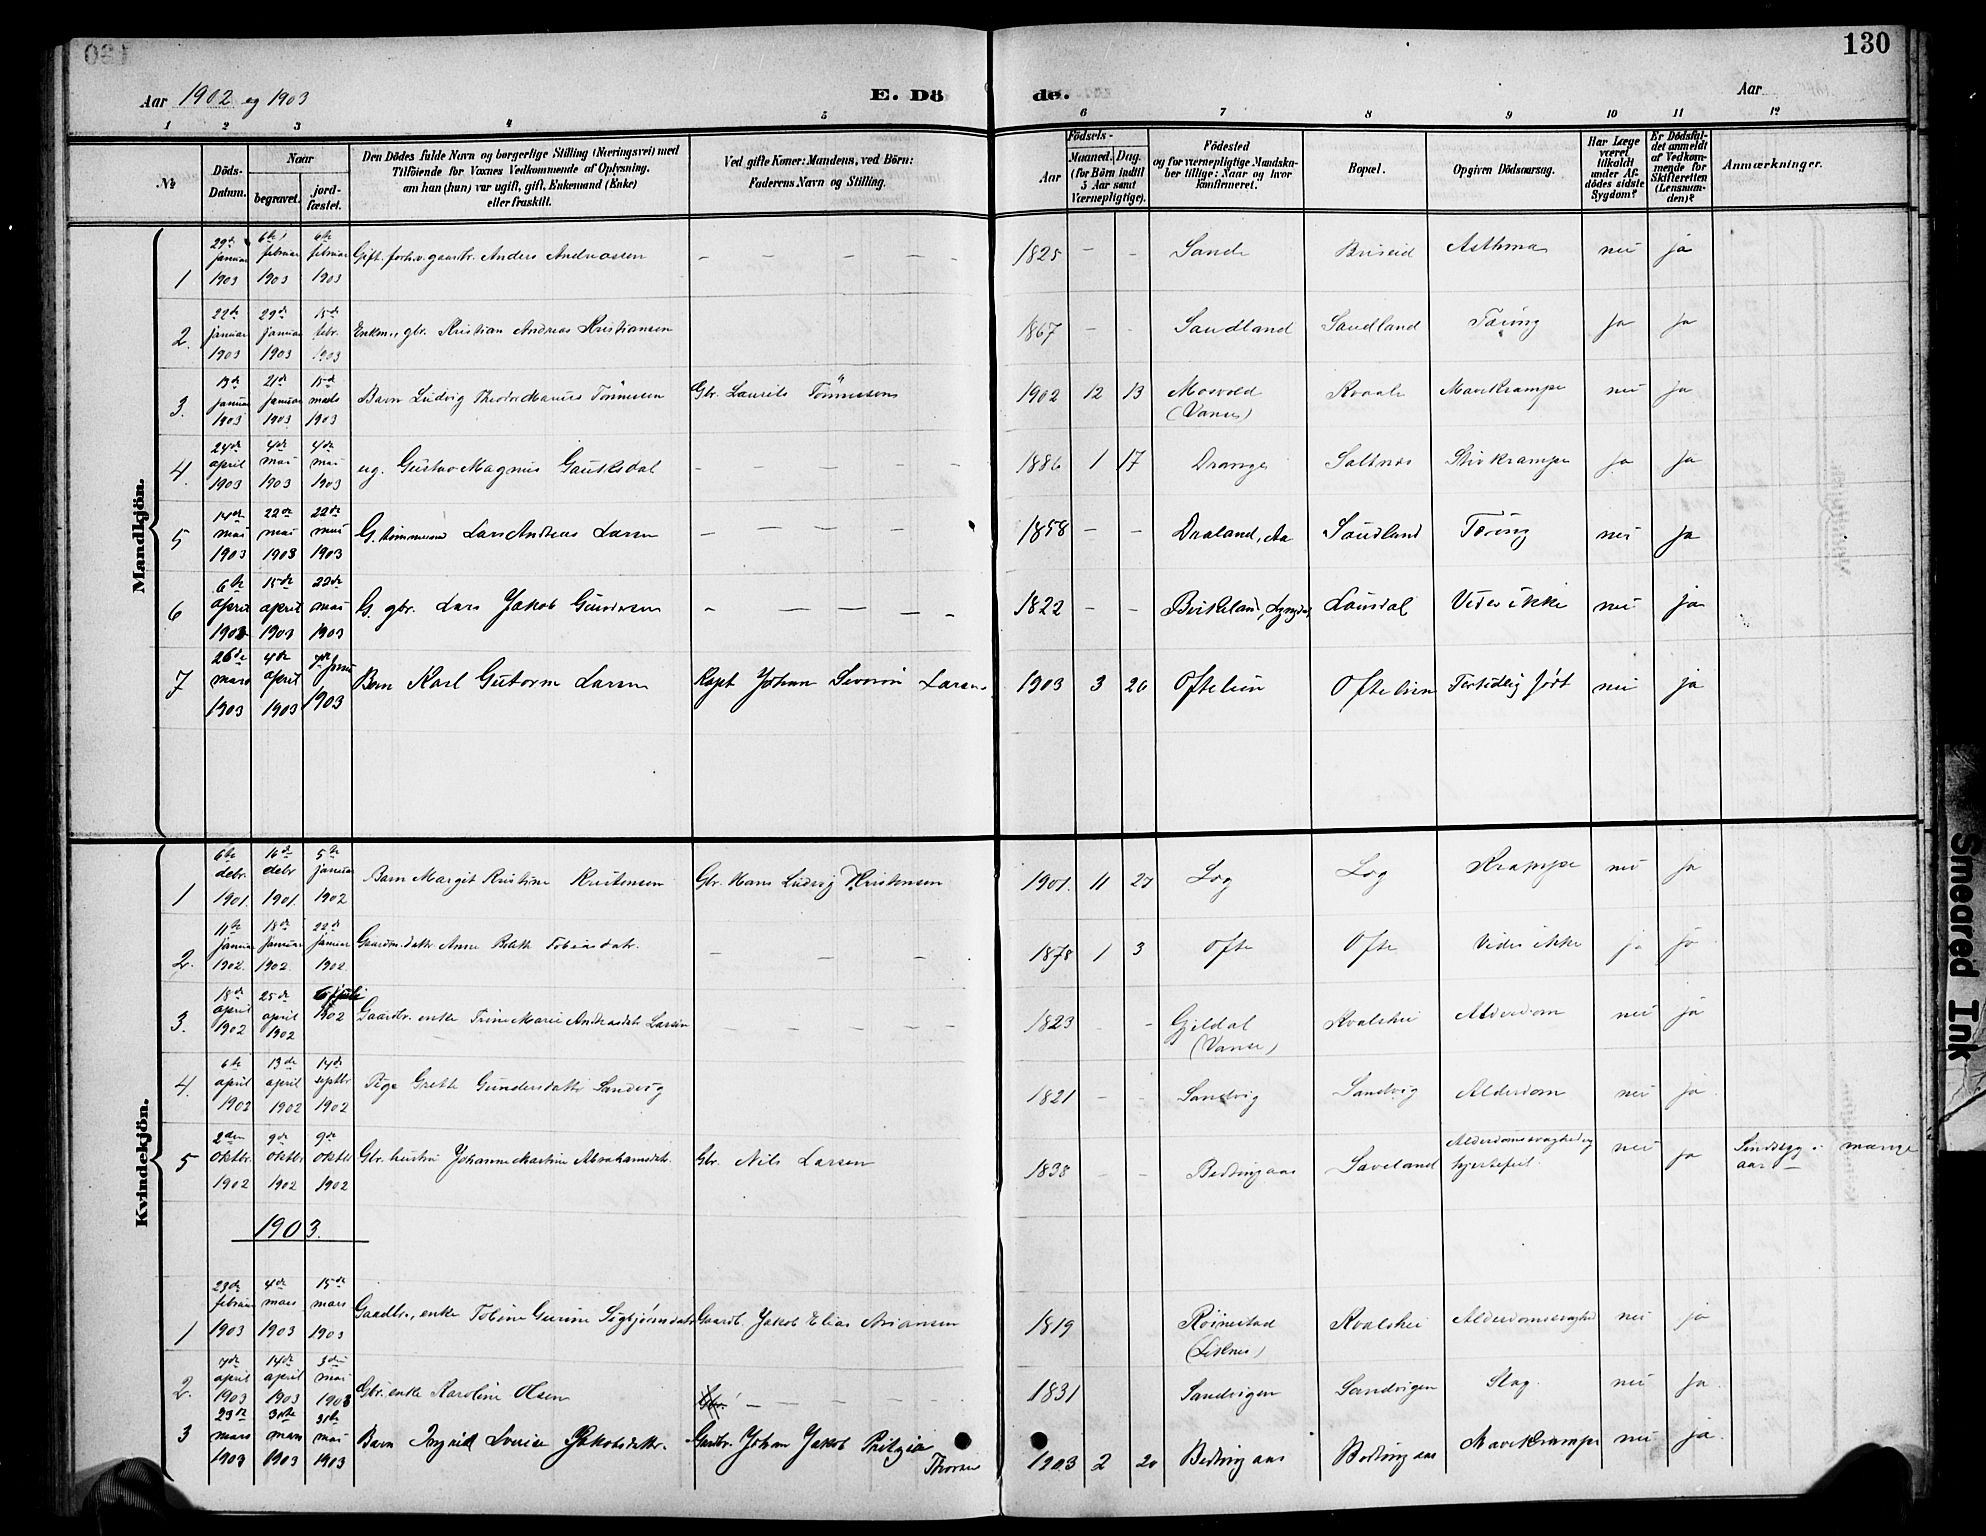 130
Aar 1902 og 1903
E. Dö
de.
Aar
1 2 3 4 5 6 7 8 9 10 11 12
№
Döds-Datum.
Naar
begravet.
jord-fæstet.
Den Dödes fulde Navn og borgerlige Stilling (Næringsvei) med
Tilföiende for Voxnes Vedkommende af Oplysning,
om han (hun) var ugift, gift, Enkemand (Enke)
eller fraskilt.
Ved gifte Koner: Mandens, ved Börn:
Faderens Navn og Stilling.
Födsels-
Aar
Maaned. Dag.
(for Börn indtil
5 Aar samt
Værnepligtige).
Födested
og for værnepligtige Mandska-
ber tillige: Naar og hvor
konfirmeret.
Bopæl.
Opgiven Dödsaarsag.
Har Læge
været
tilkaldt
under Af-
dödes sidste
Sygdom?
Er Dödsfal-
det anmeldt
af Vedkom-
mende for
Skifteretten
(Lensman-
den)?
Anmærkninger.
Mandkjön.
1 29de januar 1903 6te februar 1903 6te februar 1903 Gift. forhv. gaardbr. Anders Andreassen — 1825 — — Sande Briseid Asthma nei ja
2. 22de januar 1903 29de januar 1903 15de febr. 1903 Enkm., gbr. Kristian Andreas Kristiansen 1867 — — Sandland Sandland Tæring ja ja
3. 13de januar 1903 21de januar 1903 15de mars 1903 Barn Ludvig Theodor Marius Tönnessen Gbr. Laurits Tönnessen 1902 12 13 Mosvold (Vanse) Kvaale Mavekrampe nei ja
4. 24de april 1903 4de mai 1903 4de mai 1903 ug. Gustav Magnus Gauksdal — 1886 1 17 Drange Saltnes Stivkrampe ja ja
5 14de mai 1903 22de mai 1903 22de mai 1903 G. Lars Andreas Larsen — 1858 — — Sandland Tæring nei ja
6 6te april 1903 15de april 1903 22de mai 1903 G. gbr. Lars Jakob Gundersen — 1822 — — Birkeland, Lyngdal Lausdal Vides ikke nei ja
7 26de mars 1903 4de april 1903 7de juni 1903 Barn Karl Gutorm Larsen Kapt Johan Severin Larsen 1903 3 26 Oftebun Oftebun Fortidlig født nei ja
Kvindekjön.
1 6te debr. 1901. 16de debr 1901. 5te januar 1902 Barn Margit Kristine Kristensen Gbr. Hans Ludvig Kristensen 1901. 11 27 Log Log Krampe nei ja
2. 11te januar 1902. 18de januar 1902. 22de januar 1902. Gaardm. datter Anne Tobiasdatr. — 1878 1 3 Ofte Ofte Vides ikke ja ja
3. 18de april 1902 25de april 1902 6 juli 1902 Gaardbr. enke Trine Marie Andreasdatr Larsen — 1823 — Gjildal (Vanse) Kvalshei Alderdom nei ja
4. 6te april 1902 13de april 1902 14de septbr 1902 Pige Grethe Gundersdatter Sandvig 1821 — — Sandvig Sandvig Alderdom nei ja.
5 2den oktbr. 1902 9de oktbr 1902 9de oktbr 1902 Gbr. hustru Johanne Martine Abrahamsdatr. Gbr. Nils Larsen 1838 — — Bedringaas Saveland Alderdomssvaghed og hjertefeil. nei ja Sindssyg i mange aar —
1903.
1 23de februar 1903 4de mars 1903 15de mars 1903 Gaardbr., enke Tobine Gurine Sigbjørnsdatr Gaardb. Jakob Elias Ariansen 1819 Røinestad (Liknes) Kvalshei Alderdomssvaghed nei ja
2. 7de april 1903 14de april 1903 3die mai 1903 Gbr. enke Karoline Olsen Gbr. — 1831 Sandvigen Sandvigen Slag. nei ja.
3 23de mars 1903 31te mars 1903 31te mai 1903 Barn Ingrid Lovise Jakobsdatr. Gaardbr. Johan Jakob Thorsen 1903 2 20 Bedringaas Bedringaas Mavekrampe nei ja.
Smeared Ink